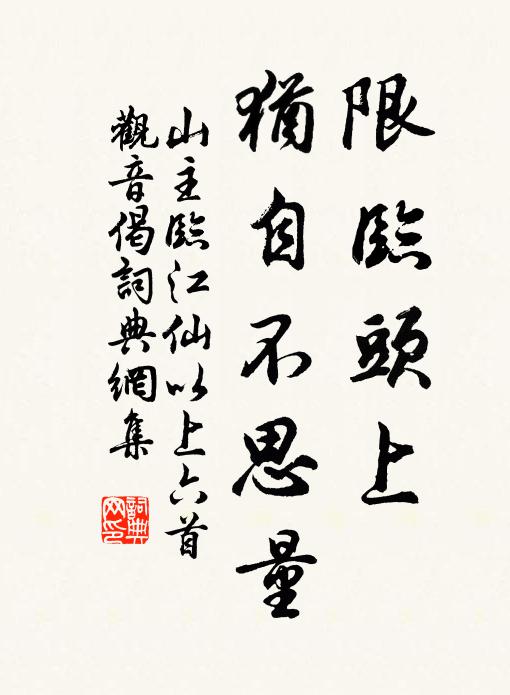 限臨頭上
猶自不思量
山主臨江仙以上六首
觀音偈詞典網集
詞典網印